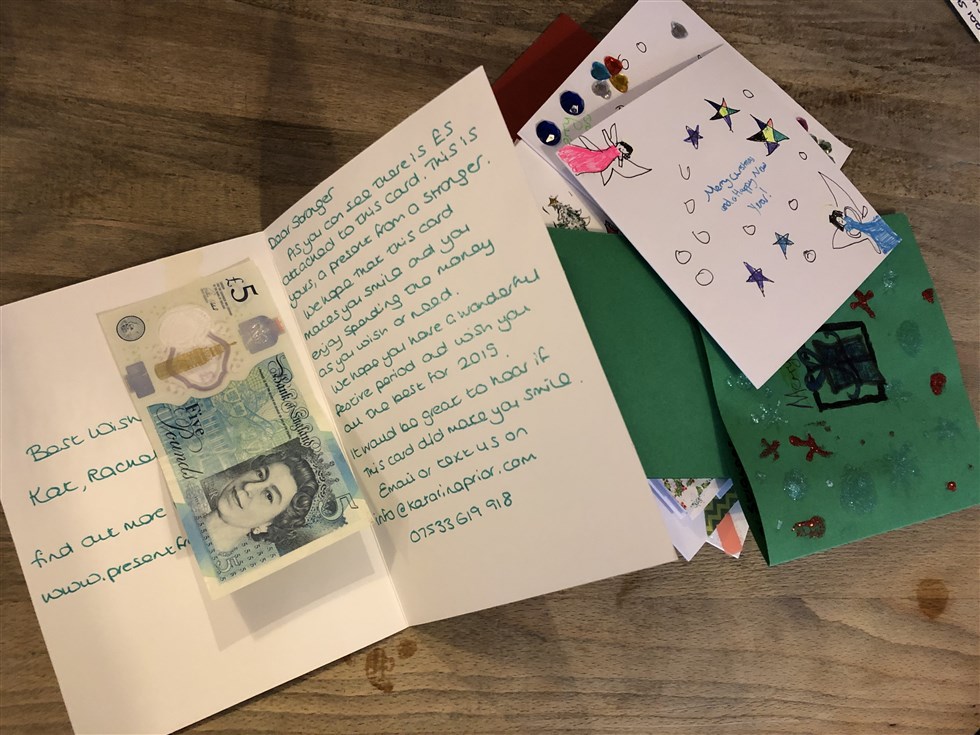 Best Wish
Kat, Rachel
find out more
www.presentfr
£5
Bank of England
Five
Pounds
5
£5
Dear Stranger
As you can see there is £5
attached to this card. This is
yours, a present from a stranger.
We hope that this card
makes you smile and you
enjoy spending the money
as you wish or need.
We hope you have a wonderful
festive period and wish you
all the best for 2019.
It would be great to hear if
this card did make you smile.
Email or text us on
info@katarinaprior.com
07533 619 918
Merry Christmas
and a Happy New
Year!